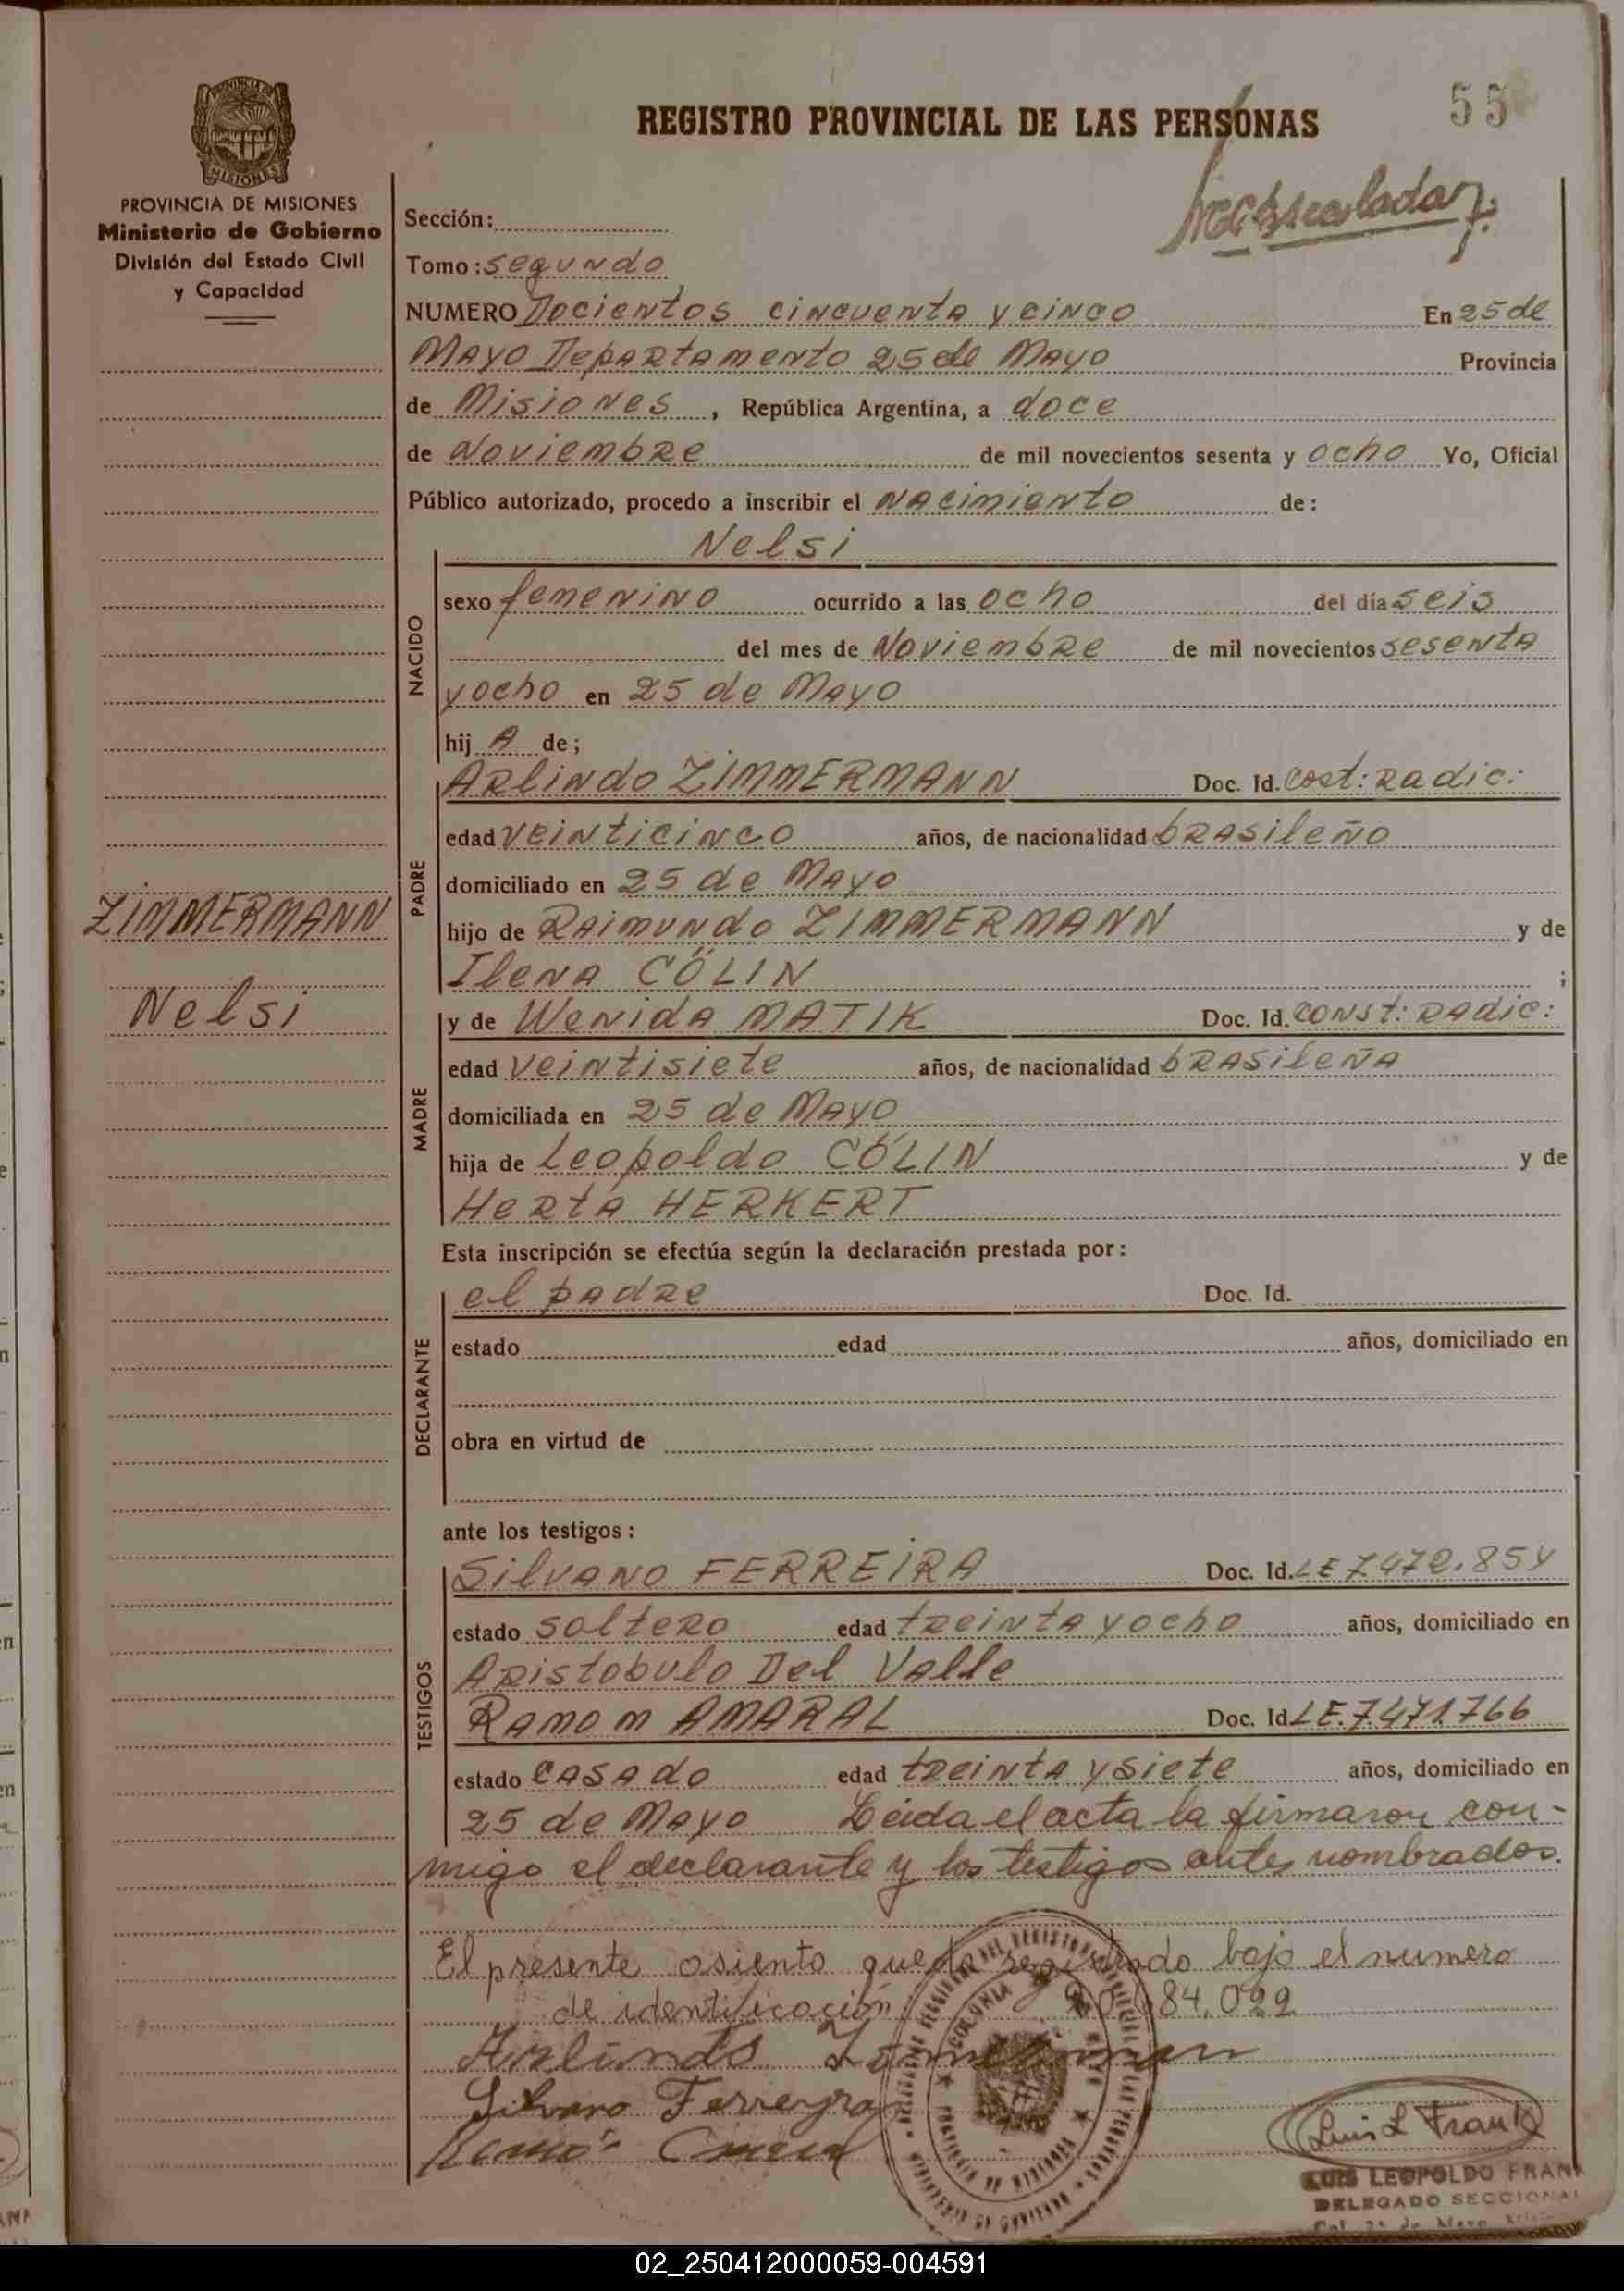 55
REGISTRO PROVINCIAL DE LAS PERSONAS
PROVINCIA DE MISIONES
Ministerio de Gobierno
División del Estado Civil
y Capacidad
Sección:
Tomo: segundo
NUMERO Docientos cincuenta y cinco En 25 de
Mayo Departamento 25 de Mayo Provincia
de Misiones, República Argentina, a doce
de Noviembre de mil novecientos sesenta y ocho Yo, Oficial
Público autorizado, procedo a inscribir el nacimiento de:
Nelsi
NACIDO
sexo femenino ocurrido a las ocho del día seis
del mes de Noviembre de mil novecientos sesenta
y ocho en 25 de Mayo
hij A de;
PADRE
Arlindo ZIMMERMANN Doc. Id. Cost: Radic:
edad veinticinco años, de nacionalidad brasileño
domiciliado en 25 de Mayo
ZIMMERMANN
hijo de Raimundo ZIMMERMANN y de
Ilena CÖLIN ;
Nelsi
MADRE
y de Wenida MATIK Doc. Id. Const: Radic:
edad veintisiete años, de nacionalidad brasileña
domiciliada en 25 de Mayo
hija de Leopoldo CÖLIN y de
Herta HERKERT
Esta inscripción se efectúa según la declaración prestada por:
DECLARANTE
el padre Doc. Id.
estado edad años, domiciliado en
obra en virtud de
ante los testigos:
TESTIGOS
Silvano FERREIRA Doc. Id. LE 7.472.854
estado soltero edad treinta y ocho años, domiciliado en
Aristobulo Del Valle
Ramom AMARAL Doc. Id LE.7.471.766
estado casado edad treinta y siete años, domiciliado en
25 de Mayo Leida el acta la firmaron con-
migo el declarante y los testigos antes nombrados.
El presente asiento queda registrado bajo el numero
de identificación 84.022
Arlindo
Silvano Ferreyra
Luis L Frank
LUIS LEOPOLDO FRANK
DELEGADO SECCIONAL
02_250412000059-004591